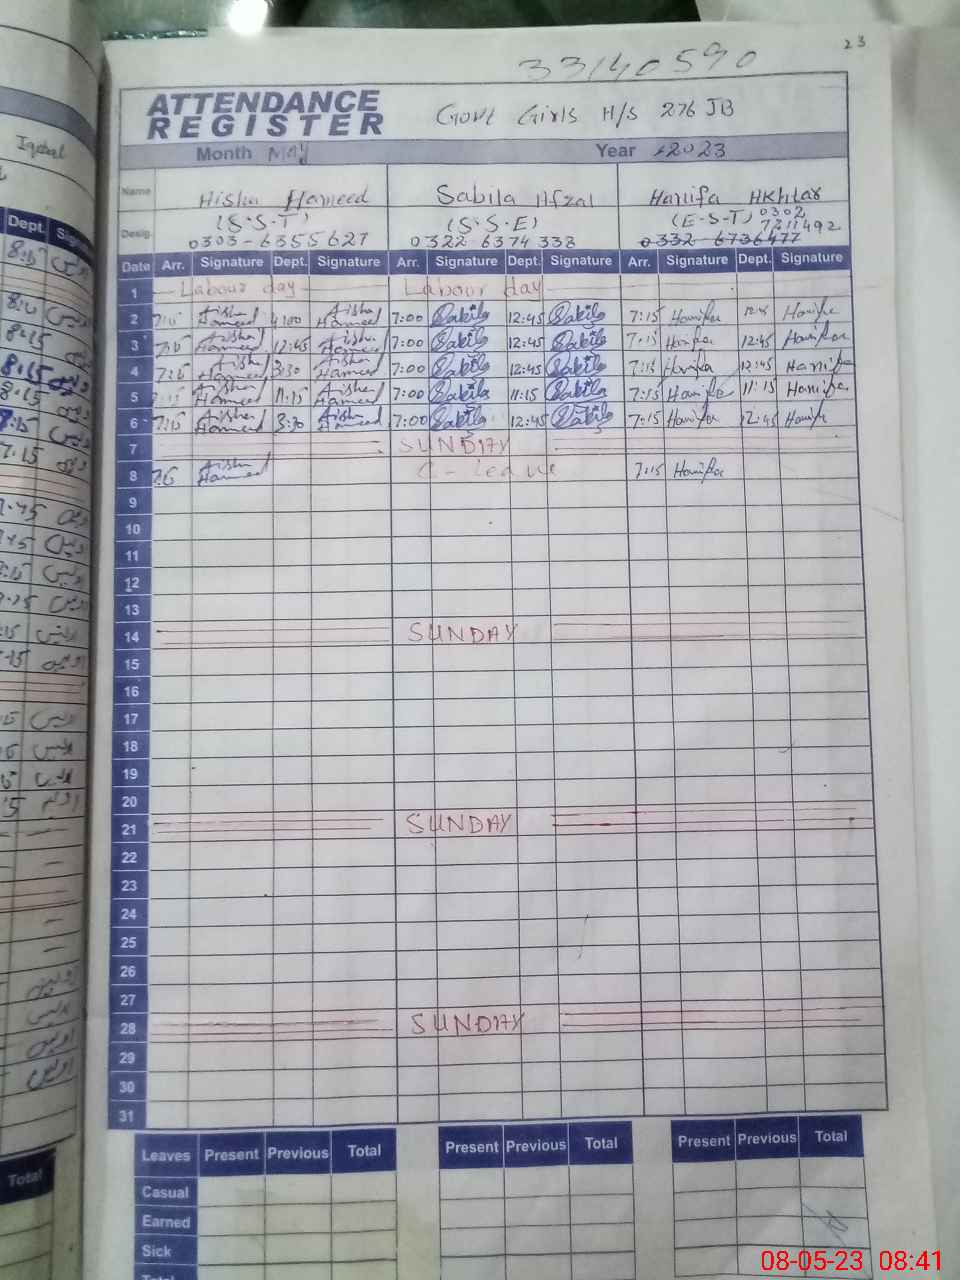 23
33140590
ATTENDANCE
REGISTER
Govt Girls H/S 276 JB
Month MAY Year 2023
Iqbal
Name Aisha Hameed Sabila Afzal Hanifa Akhtar
Desig. (S.S.T) (S.S.E) (E-S-T) 0302
7211492
0303-6355627 0322 6374338 0332-6736477
Dept.
Date Arr. Signature Dept. Signature Arr. Signature Dept. Signature Arr. Signature Dept. Signature
1 Labour day Labour day
2 Aisha Hameed 4:00 Aisha Hameed 7:00 Sabila 12:45 Sabila 7:15 Hanifa Hanifa
3 Aisha Hameed 12:45 Aisha Hameed 7:00 Sabila 12:45 Sabila 7:15 Hanifa 12:45 Hanifa
4 7:15 Aisha Hameed 3:30 Aisha Hameed 7:00 Sabila 12:45 Sabila 7:15 Hanifa 12:45 Hanifa
5 Aisha Hameed 11:15 Aisha Hameed 7:00 Sabila 11:15 Sabila 7:15 Hanifa 11:15 Hanifa
6 7:15 Aisha Hameed 3:30 Aisha Hameed 7:00 Sabila 12:45 Sabila 7:15 Hanifa 12:45 Hanifa
7 SUNDAY
8 Aisha Hameed C-Leave 7:15 Hanifa
9
10
11
12
13
14 SUNDAY
15
16
17
18
19
20
21 SUNDAY
22
23
24
25
26
27
28 SUNDAY
29
30
31
Leaves Present Previous Total Present Previous Total Present Previous Total
Casual
Earned
Sick
Total
Total
08-05-23 08:41